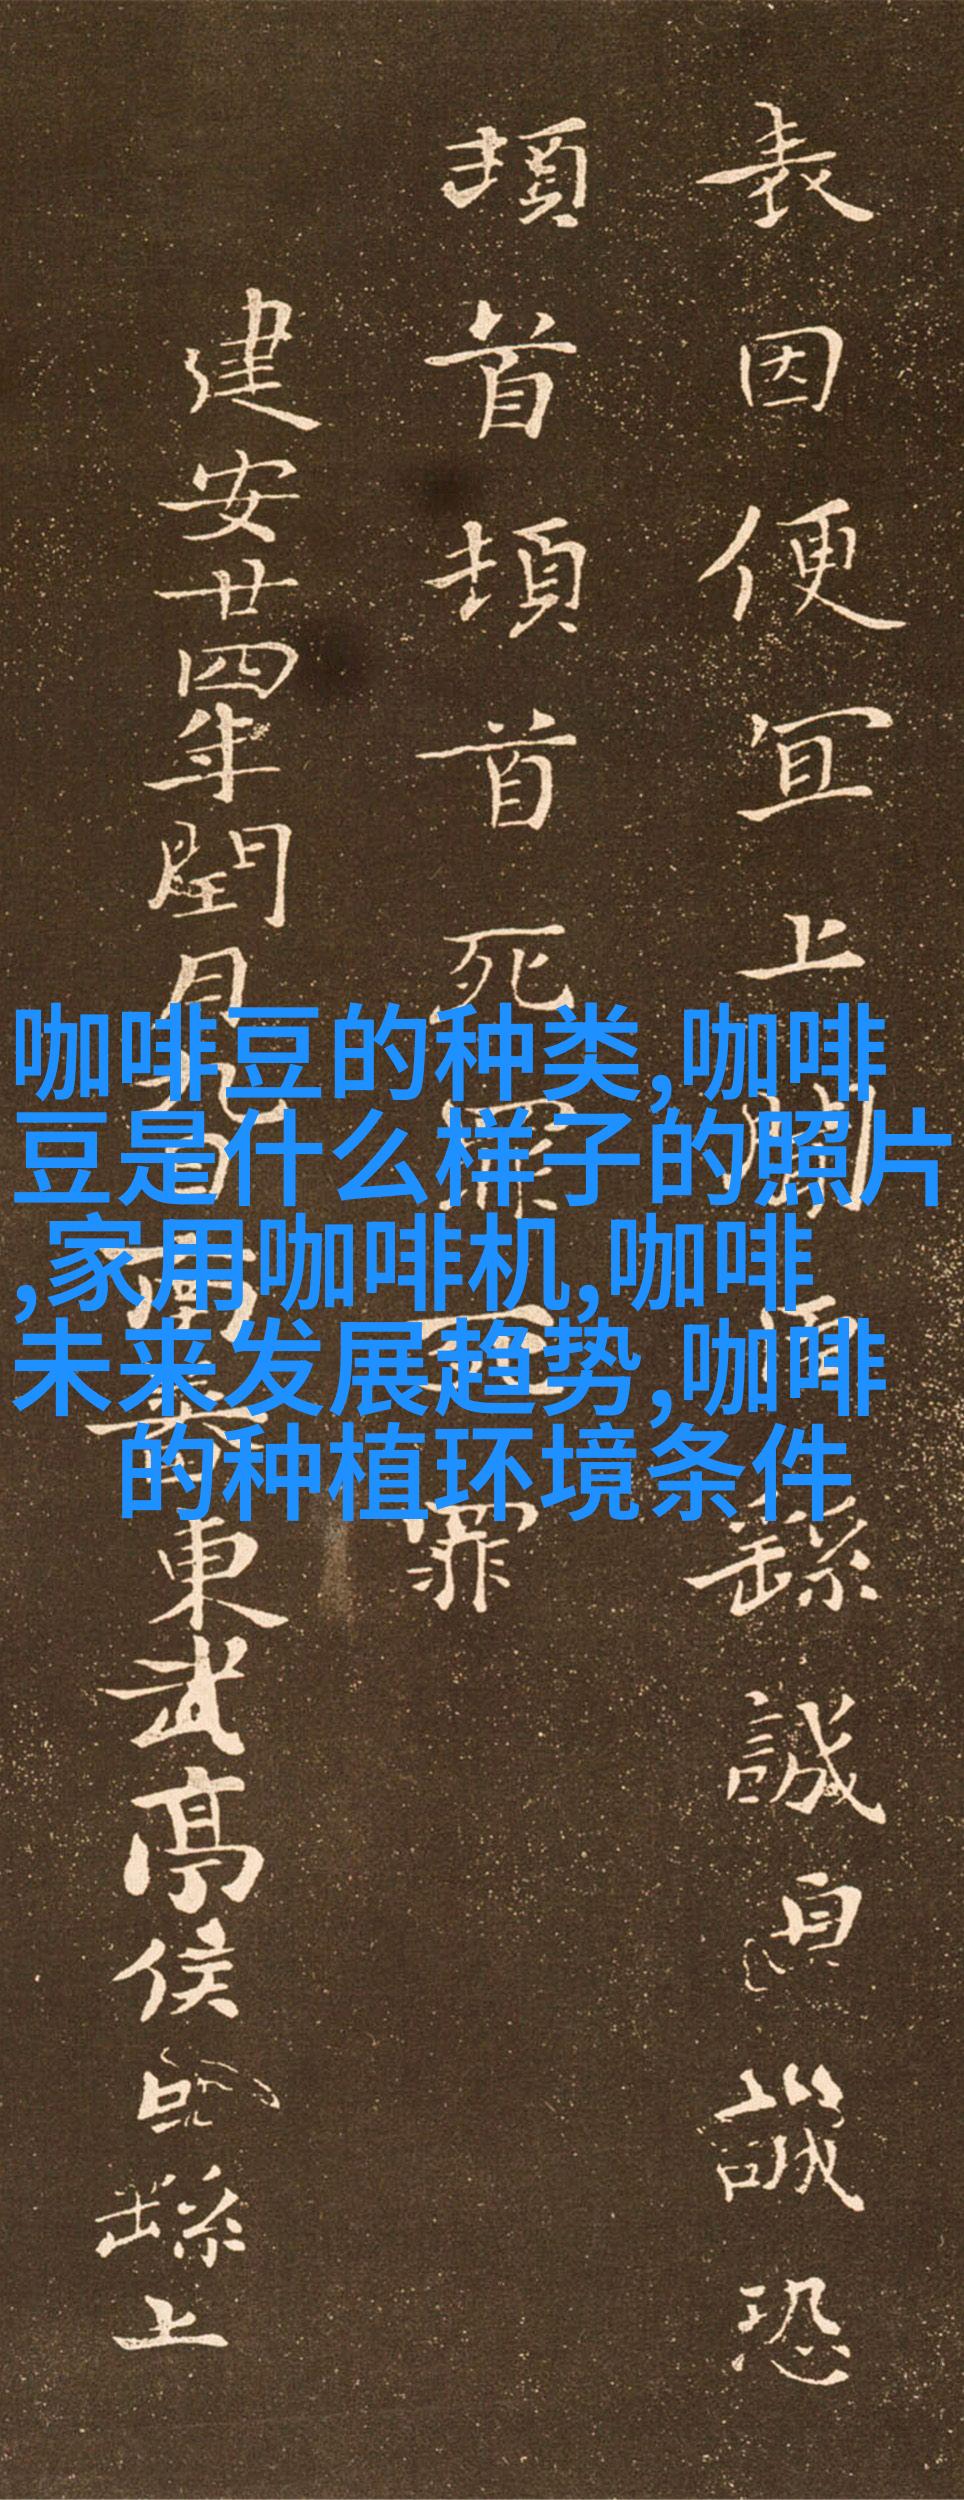 表因便宜上聞臣繇誠皇誠恐
頓首頓首死罪死罪
建安廿四年閏月九日南蕃東武亭侯臣繇上
咖啡豆的种类,咖啡
豆是什么样子的照片
,家用咖啡机,咖啡
未来发展趋势,咖啡
的种植环境条件